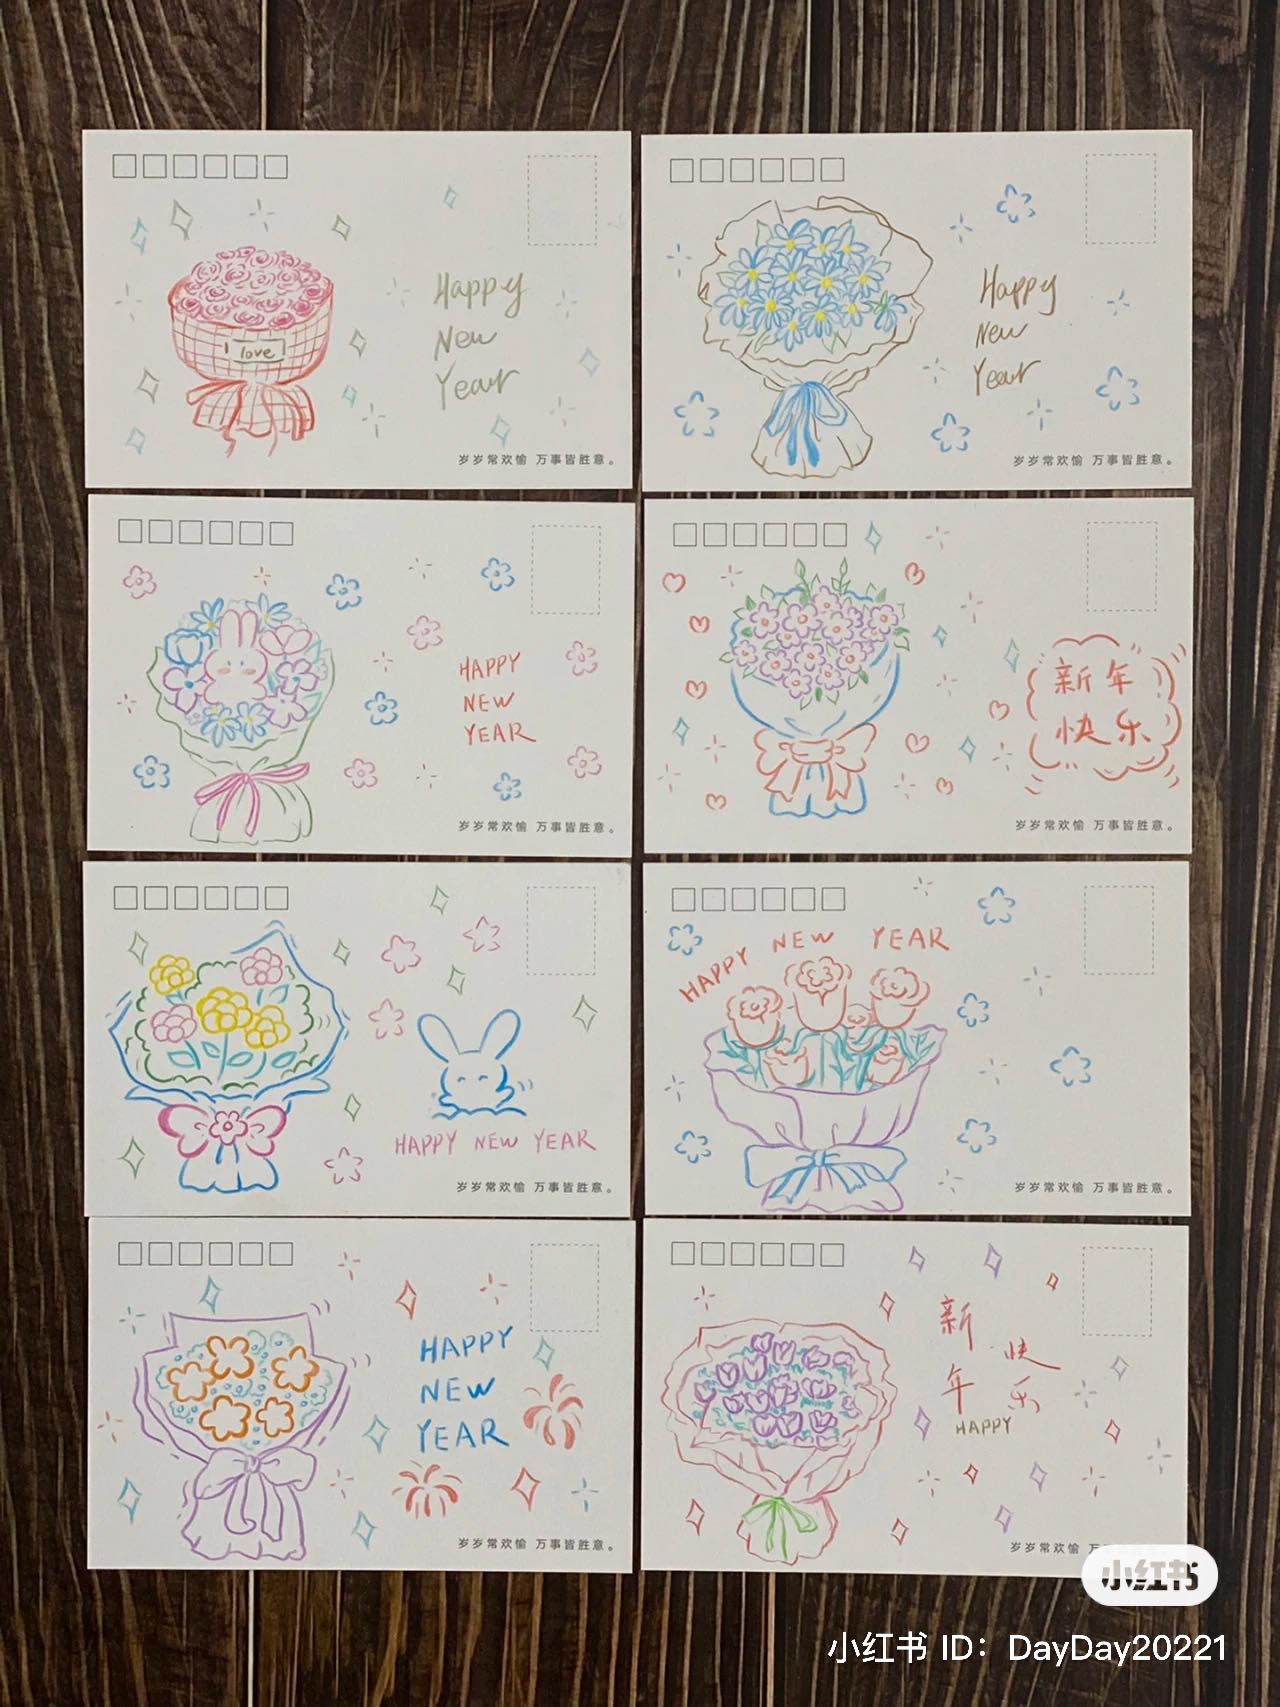 Happy
New
Year
love
岁岁常欢愉 万事皆胜意。
Happy
New
Year
岁岁常欢愉 万事皆胜意。
HAPPY
NEW
YEAR
岁岁常欢愉 万事皆胜意。
新年
快乐
岁岁常欢愉 万事皆胜意。
HAPPY NEW YEAR
岁岁常欢愉 万事皆胜意。
HAPPY NEW YEAR
岁岁常欢愉 万事皆胜意。
HAPPY
NEW
YEAR
岁岁常欢愉 万事皆胜意。
新年
快乐
HAPPY
岁岁常欢愉 万
小红书
小红书 ID：DayDay20221